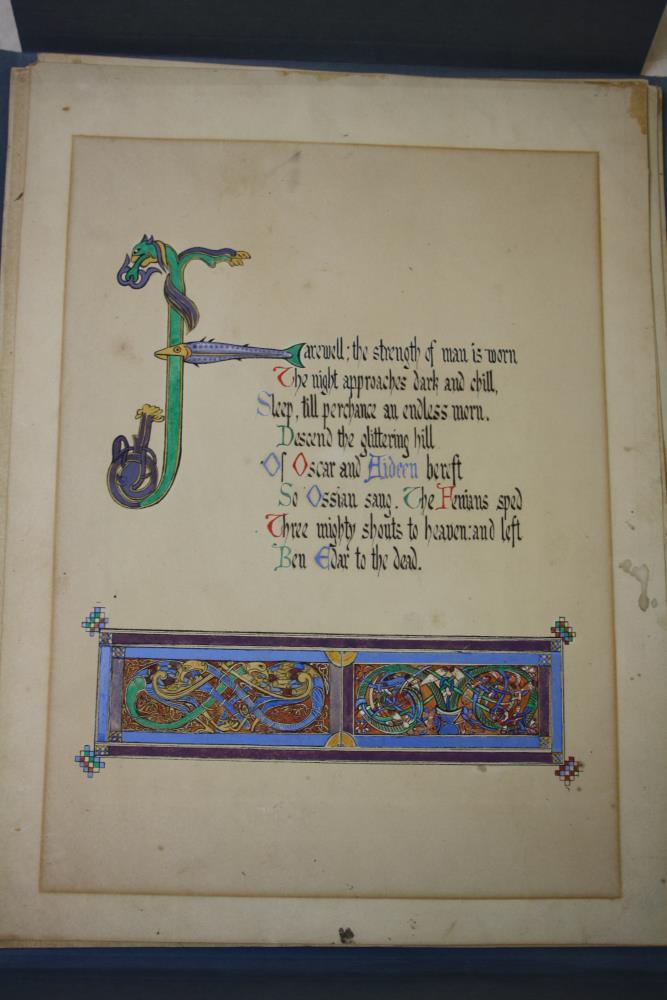 Farewell; the strength of man is worn
The night approaches dark and chill,
Sleep, till perchance an endless morn.
Descend the glittering hill
Of Oscar and Aideen bereft
So Ossian sang. The Fenians sped
Three mighty shouts to heaven: and left
Ben Edar to the dead.